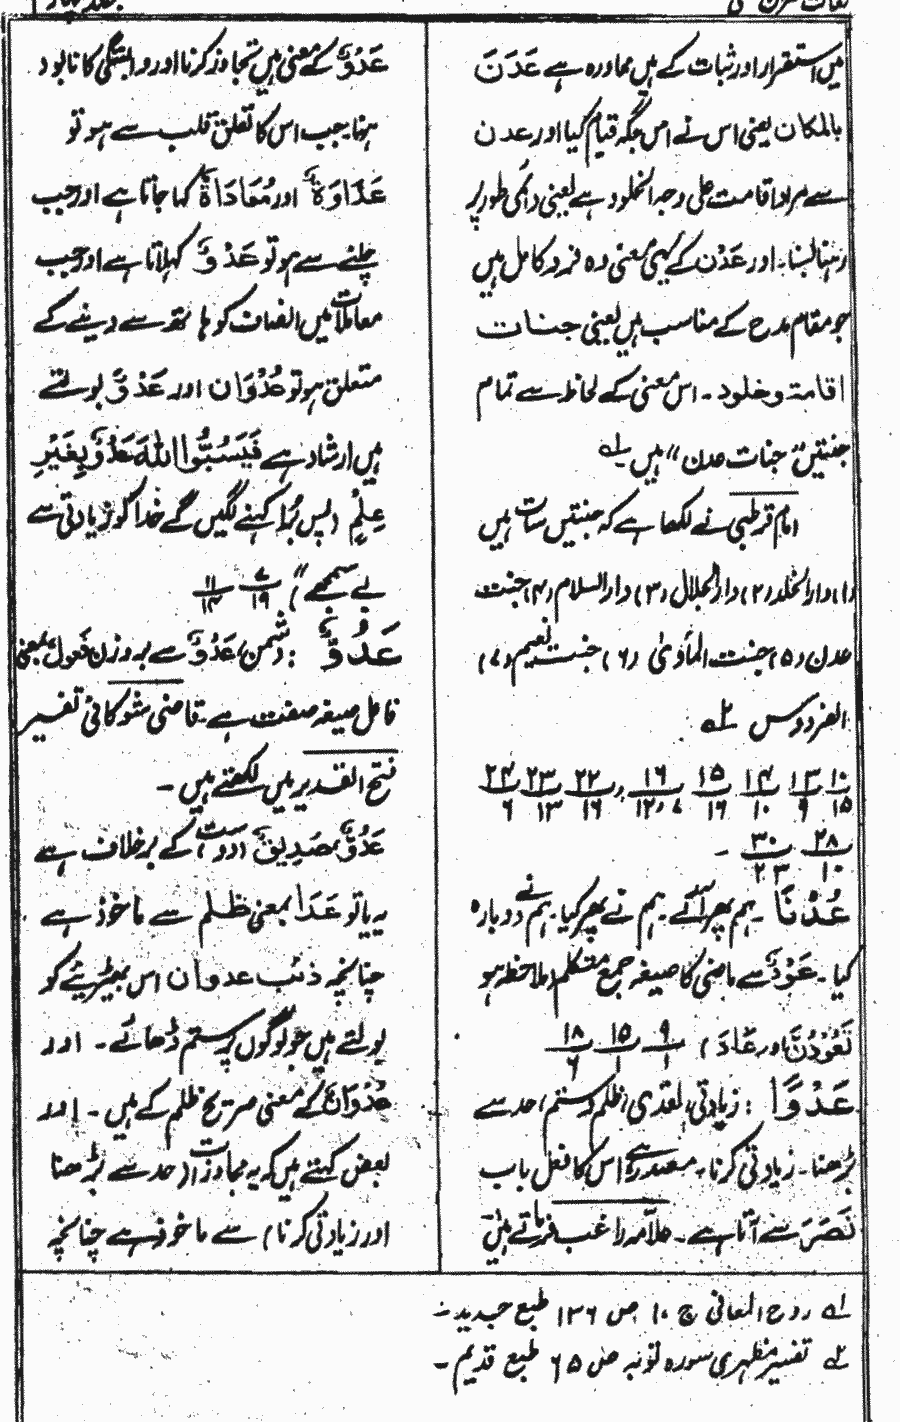 میں استقرار اور ثبات کے ہیں محاورہ ہے عَدَنَ
بالمکان یعنی اس نے اس جگہ قیام کیا اور عدن
سے مراد اقامت علی وجہ الخلود ہے یعنی دائمی طور پر
رہنا بسنا۔ اور عَدْن کے یہی معنی وہ فردِ کامل ہیں
جو مقام مدح کے مناسب ہیں یعنی جنات
اقامۃ وخلود۔ اس معنی کے لحاظ سے تمام
جنتیں جنات عدن" ہیں لہ
امام قرطبی نے لکھا ہے کہ جنتیں سات ہیں
(۱) دار الخلد (۲) دار الجلال (۳) دار السلام (۴) جنت
عدن (۵) جنت المأویٰ (۶) جنت نعیم (۷)
الفردوس ۲ہ
۱۰/۱۵ ۱۳/۹ ۱۴/۱۰ ۱۵/۱۶ ۱۶/۷، ۱۲، ۲۲/۱۶ ۲۳/۱۳ ۲۴/۶
۲۸/۱۰ ۳۰/۲۳ ۔
عُدْنَا ۔ ہم پھر آئے۔ ہم نے پھر کیا۔ ہم نے دوبارہ
کیا۔ عَوْدٌ سے ماضی کا صیغہ جمع متکلم (ملاحظہ ہو
تَعُوْدُنَّ اور عَادَ) ۹/۱ ۱۵/۱ ۱۸/۶
عَدْوًا : زیادتی، تعدی، ظلم و ستم، حد سے
بڑھنا۔ زیادتی کرنا۔ مصدر ہے اس کا فعل باب
نَصَرَ سے آتا ہے۔ علامہ راغب فرماتے ہیں
عَدْوٌ کے معنی ہیں تجاوز کرنا اور وابستگی کا نابود
ہونا جب اس کا تعلق قلب سے ہو تو
عَدَاوَۃٌ اور مُعَادَاۃٌ کہا جاتا ہے اور جب
چلنے سے ہو تو عَدْوٌ کہلاتا ہے اور جب
معاملات میں انصاف کو ہاتھ سے دینے کے
متعلق ہو تو عُدْوَان اور عَدْوٌ بولتے
ہیں ارشاد ہے فَیَسُبُّوا اللّٰہَ عَدْوًا بِغَیْرِ
عِلْمٍ (پس بُرا کہنے لگیں گے خدا کو زیادتی سے
بے سمجھے") ۷/۱۹ ۱۱/۱۴
عَدُوٌّ : دشمن، عَدْوٌ سے بر وزن فَعُولٌ بمعنی
فاعل صیغہ صفت ہے۔ قاضی شوکانی تفسیر
فتح القدیر میں لکھتے ہیں ۔
عَدُوٌّ، صَدِیقٌ (دوست) کے برخلاف ہے
یہ یا تو عَدَا بمعنی ظلم سے ماخوذ ہے
چنانچہ ذئب عدوان اس بھیڑیئے کو
بولتے ہیں جو لوگوں پر ستم ڈھائے۔ اور
عُدْوَانٌ کے معنی صریح ظلم کے ہیں۔ اور
بعض کہتے ہیں کہ یہ مجاوزات (حد سے بڑھنا
اور زیادتی کرنا) سے ماخوذ ہے چنانچہ
لہ روح المعانی ج ۱۰ ص ۱۳۶ طبع جدید۔
۲ہ تفسیر مظہری سورہ توبہ ص ۶۵ طبع قدیم۔